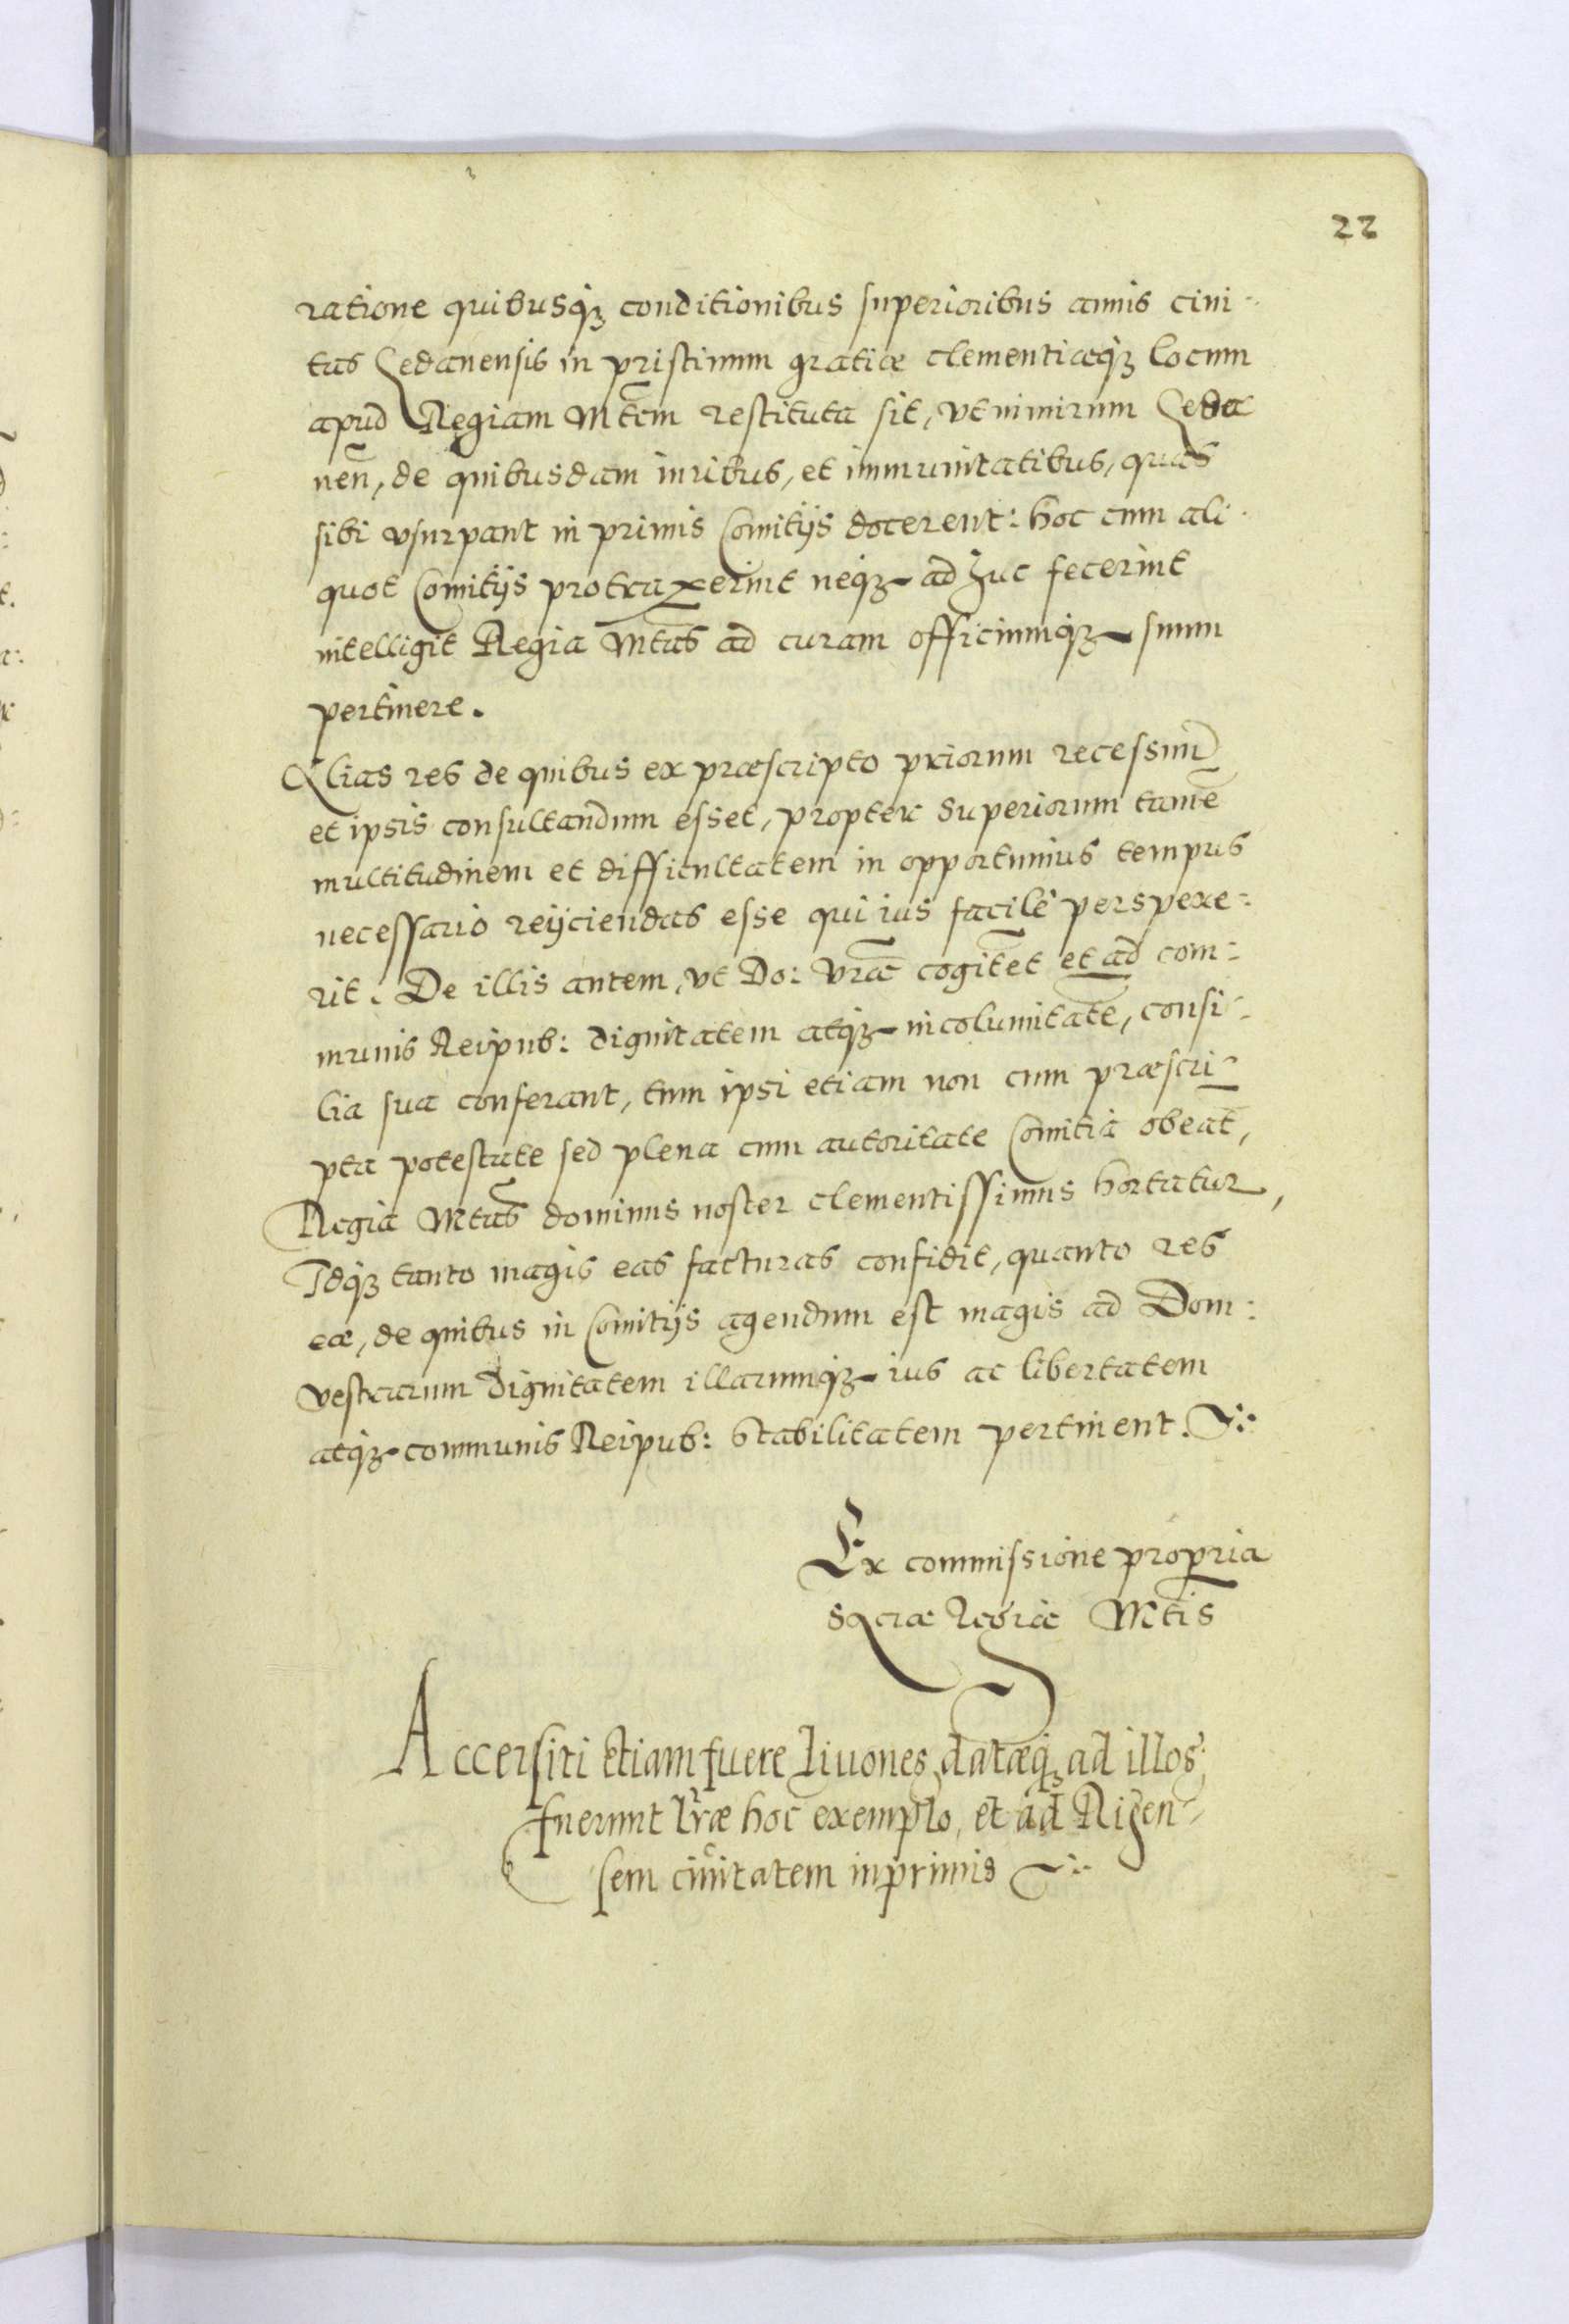 22
ratione quibusq₃ conditionibus superioribus annis ciui-
tas Gedanensis in pristinum gratiæ clementiæq₃ locum
apud Regiam Mtem restituta sit, vt nimirum Geda
nen̄, de quibusdam iuribus, et immunitatibus, quas
sibi vsurpant in primis Comitijs docerent: hoc cum ali-
quot Comitijs protraxerint neq₃ adhuc fecerint
intelligit Regia Mtas ad curam officiumq₃ suum
pertinere.
Alias res de quibus ex præscripto priorum recessuum
et ipsis consultandum esset, propter superiorum tamē
multitudinem et difficultatem in opportunius tempus
necessario reijciendas esse quiuis facilè perspexe:
rit. De illis autem, vt Do: Vrae cogitent et ad com:
munis Reipub: dignitatem atq₃ incolumitatē, consi-
lia sua conferant, tum ipsi etiam non cum præscri-
pta potestate sed plena cum autoritate Comitia obeāt,
Regia Mtas dominus noster clementissimus hortatur,
Idq₃ tanto magis eas facturas confidit, quanto res
eæ, de quibus in Comitijs agendum est magis ad Dom:
vestrarum dignitatem illarumq₃ ius ac libertatem
atq₃ communis Reipub: stabilitatem pertinent.
Ex commissione propria
sacræ Regiæ Mtis
Accersiti etiam fuere Liuones, datæq₃ ad illos
fuerunt lræ hoc exemplo, et ad Rigen-
sem ciuitatem inprimis